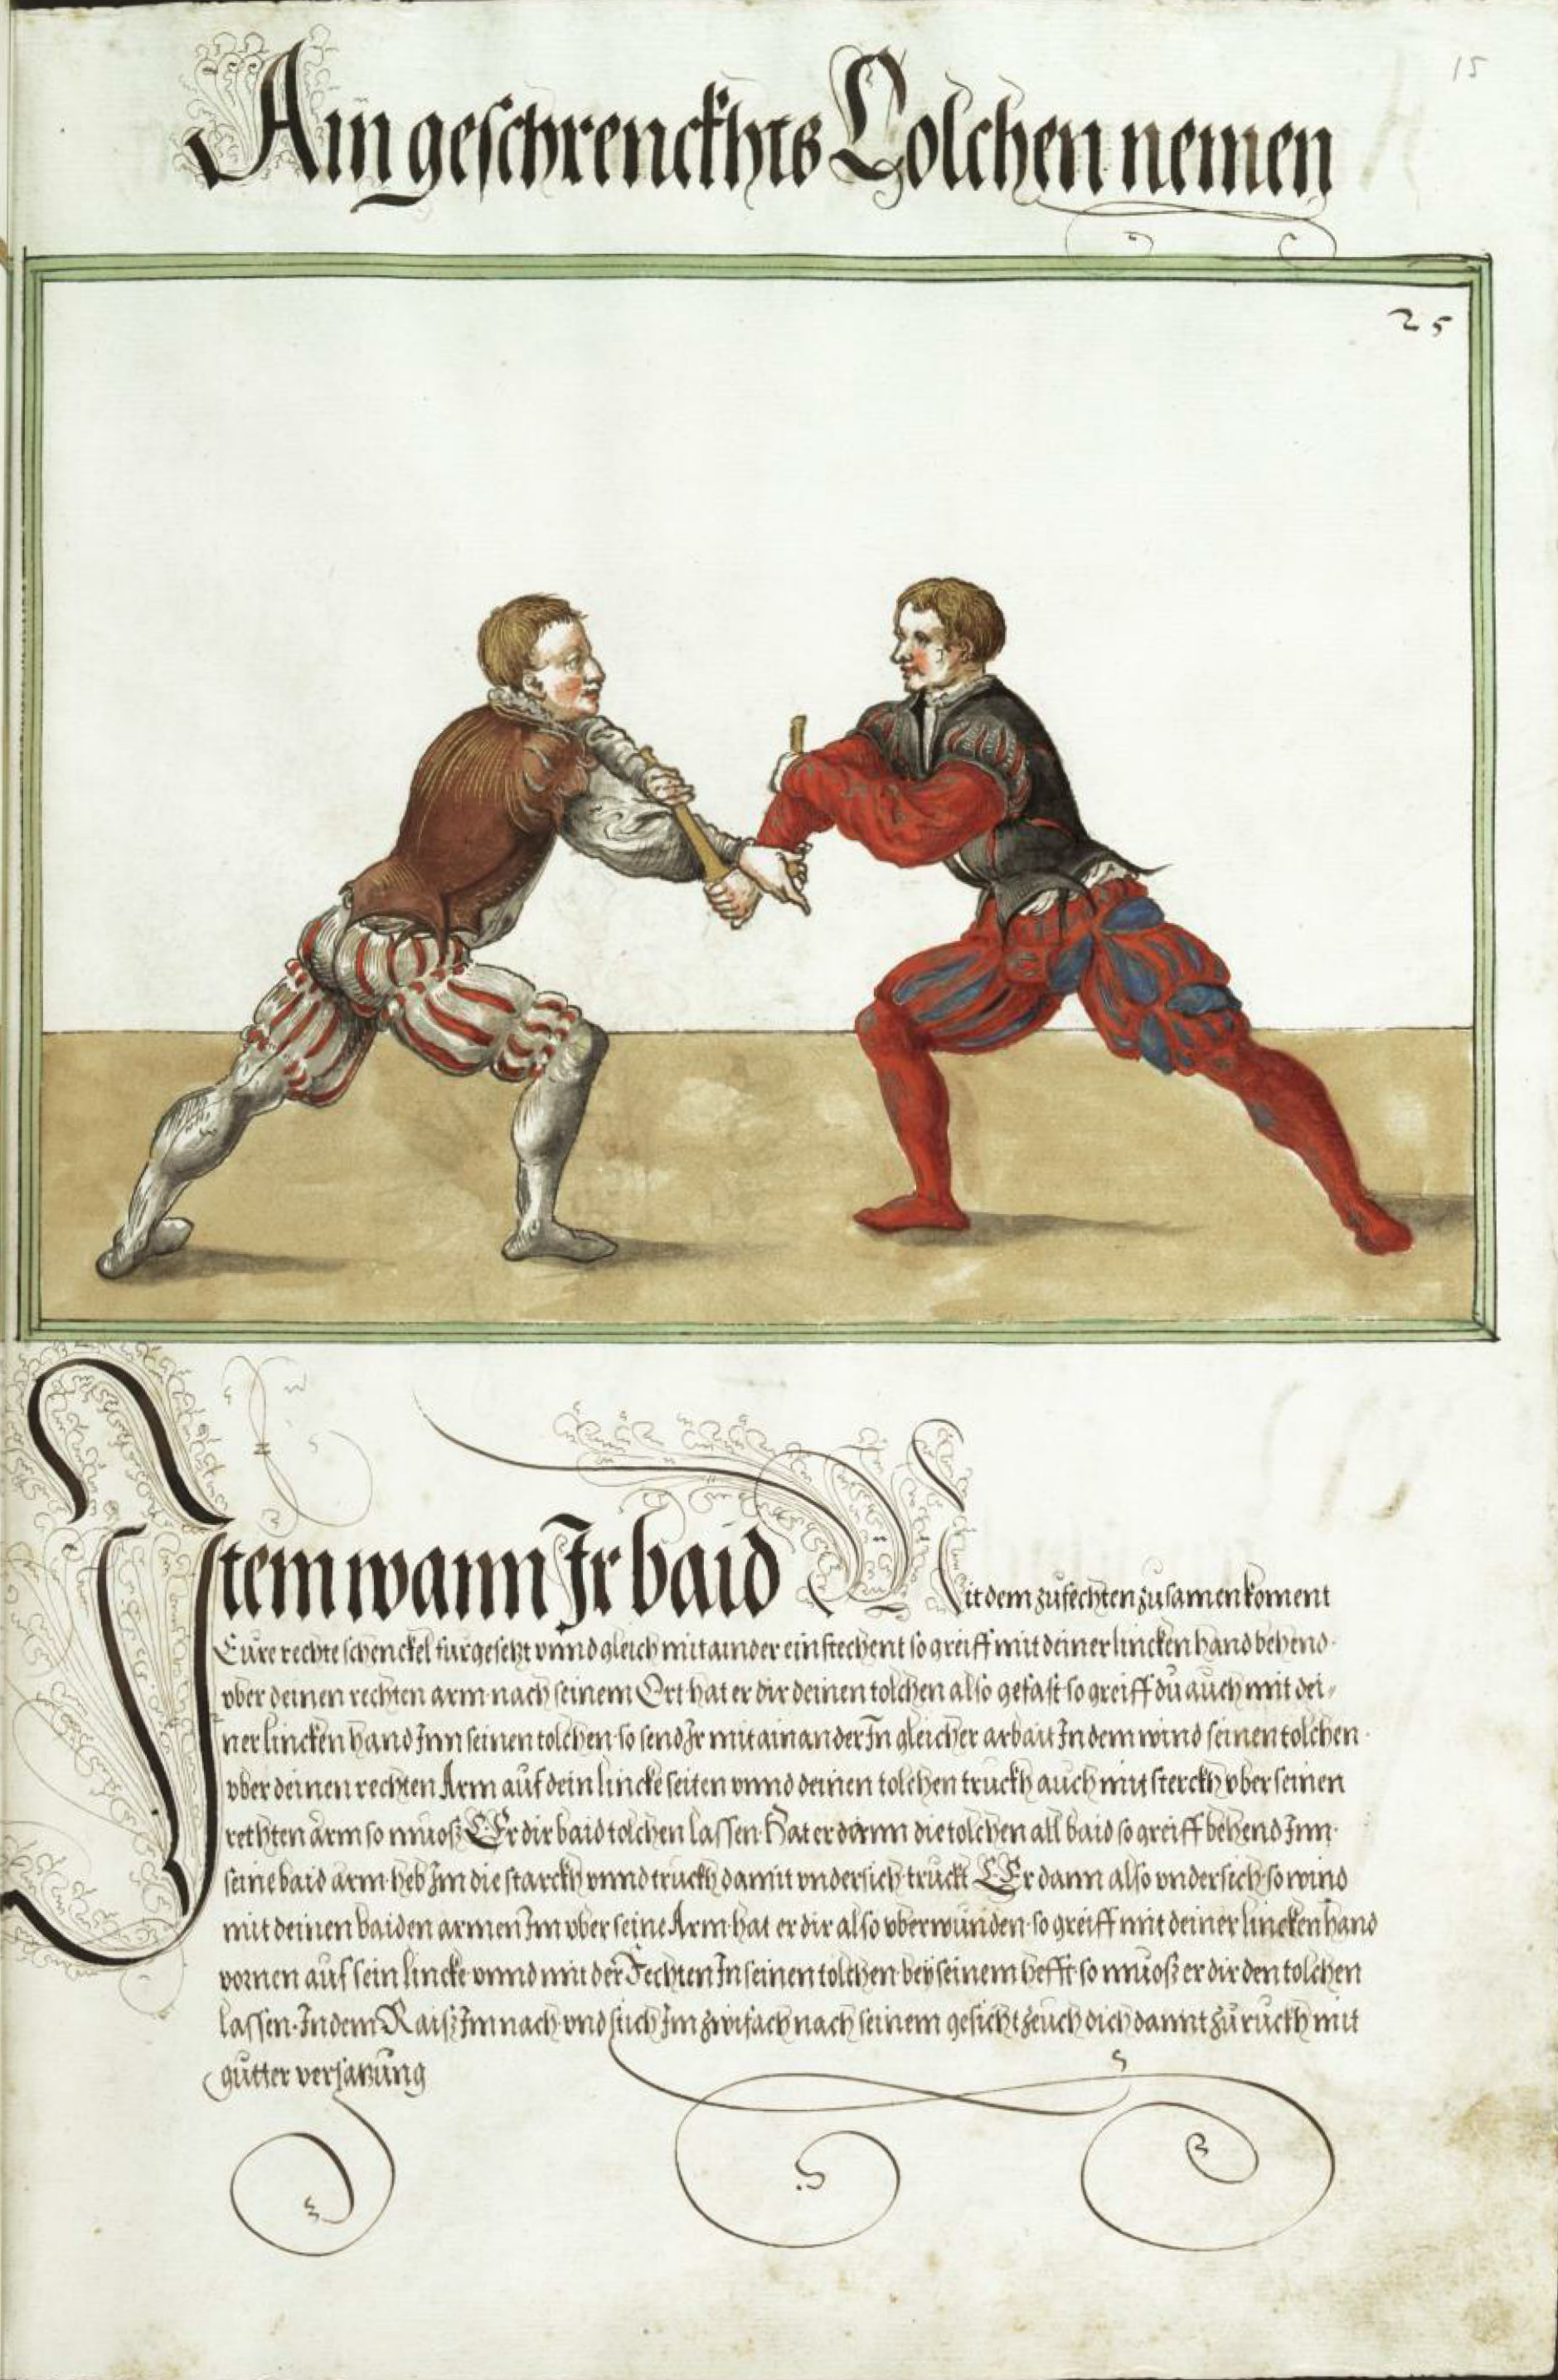 15
Ain geschrenckhts Dolchen nemen
25
Item wann Ir baid Mit dem zufechten zusamen koment
Eure rechte schenckel furgesetzt vnnd gleich mitainder einstechent so greiff mit deiner lincken hand behend
vber deinen rechten arm nach seinem Ort hat er dir deinen tolchen also gefast so greiff du auch mit dei-
ner lincken hand Inn seinen tolchen so send Ir mitainander In gleicher arbait In dem wind seinen tolchen
vber deinen rechten Arm auf dein lincke seiten vnnd deinen tolchen truckh auch mit sterckh vber seinen
rechten arm so muosz Er dir baid tolchen lassen Hat er dann die tolchen all baid so greiff behend Inn
seine baid arm heb Im die starckh vnnd truckh damit vndersich truckt Er dann also vndersich so wind
mit deinen baiden armen Im vber seine Arm hat er dir also vberwunden so greiff mit deiner lincken hand
vornen auf sein lincke vnnd mit der Rechten In seinen tolchen bey seinem hefft so muosz er dir den tolchen
lassen In dem Raisz Im nach vnd stich Im zwifach nach seinem gesicht zeuch dich damit zu ruckh mit
gutter versatzung